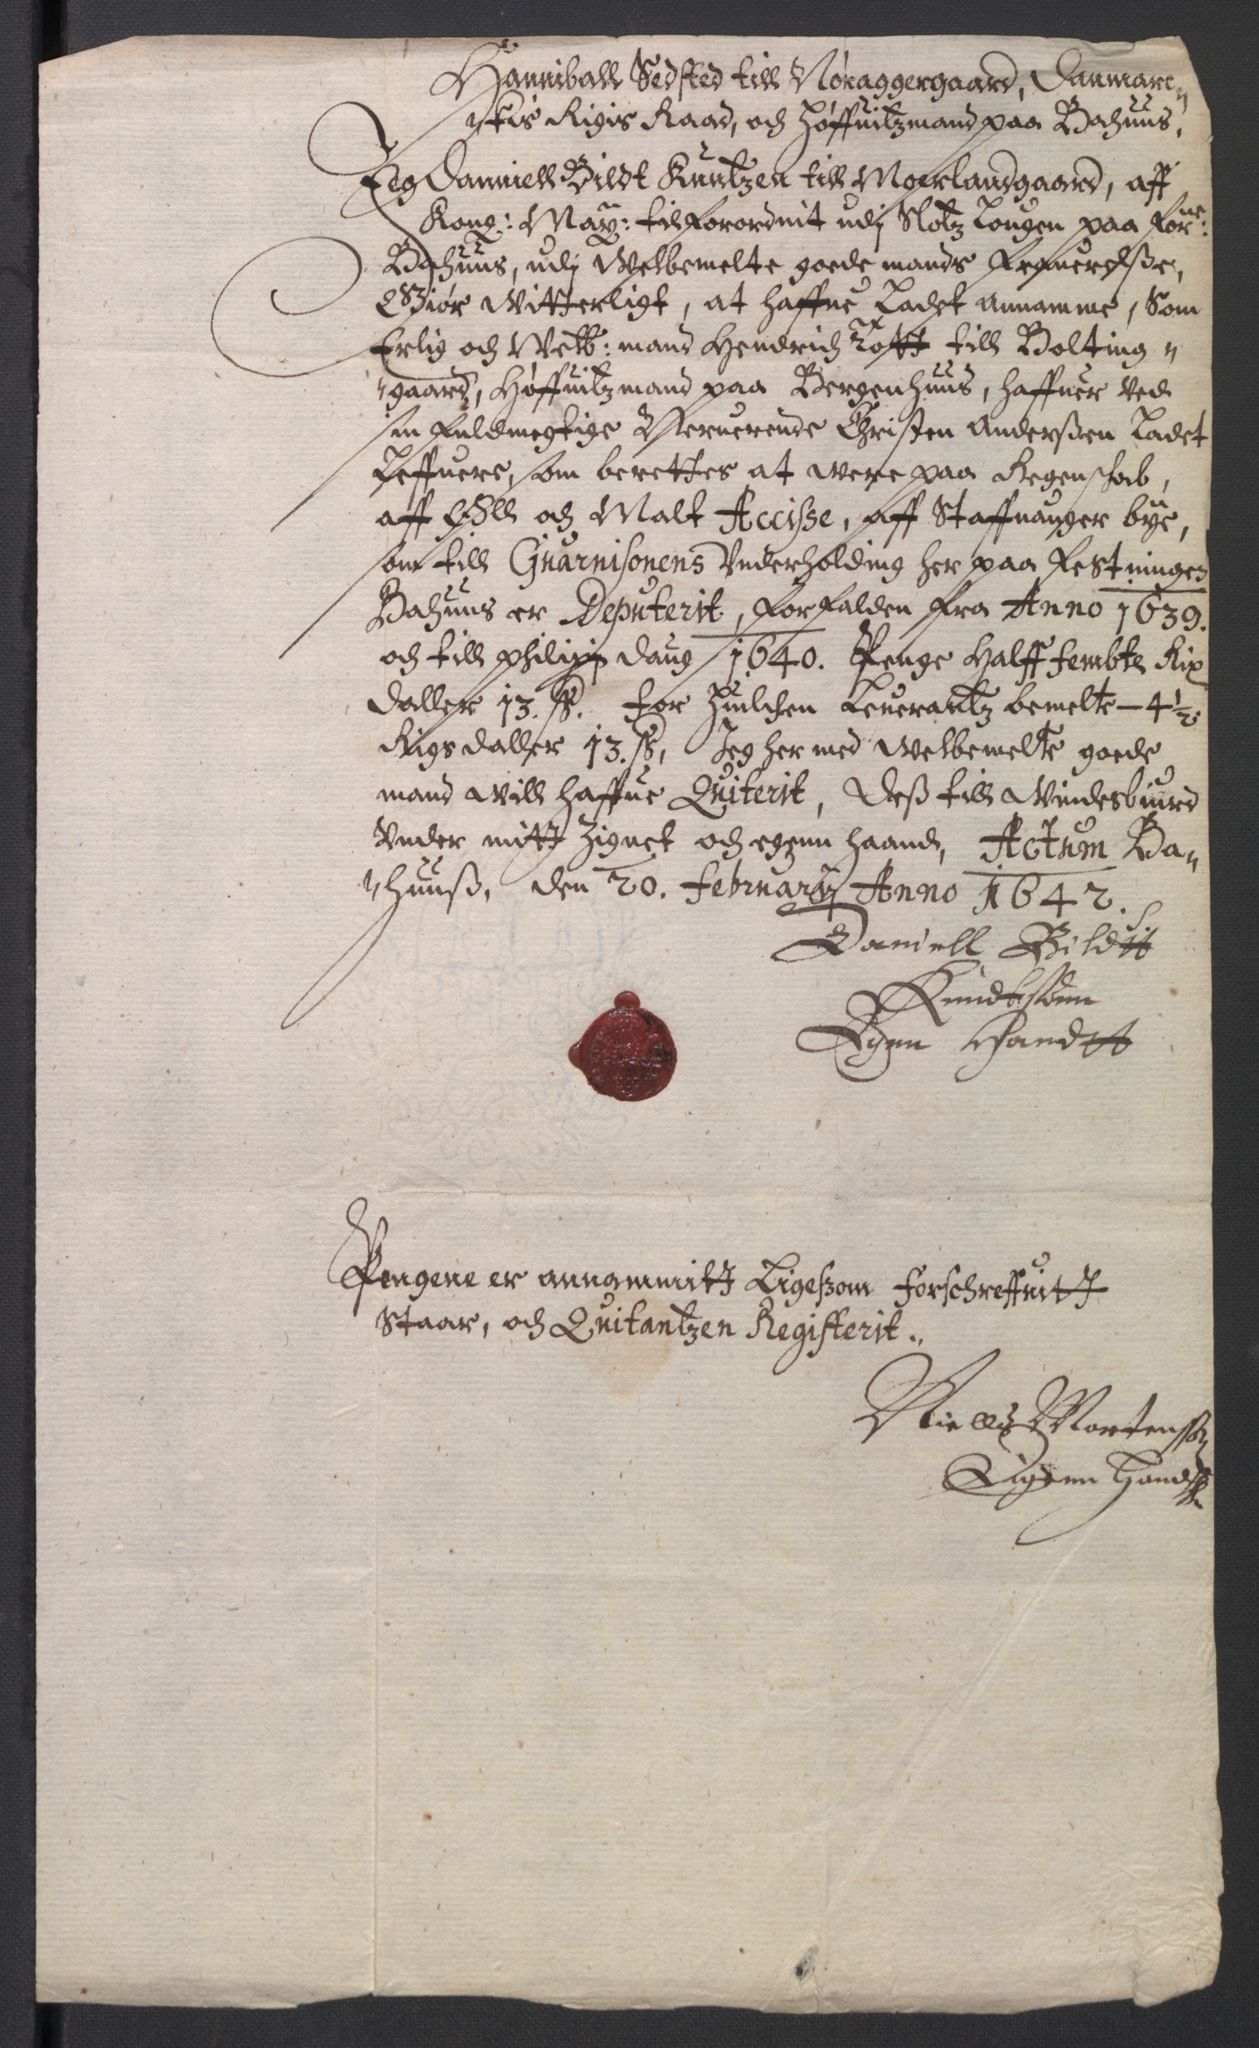 Hanniball Sedsted till Nøraggergaard, Danmarc„
„kis Rigis Raad, och Høffuitzmand paa Bahuus,
Jeg Danniell Bildt Knutzen till Moerlandgaard, aff
Kong: May: tilforordnit udj Slotz Lougen paa forne:
Bahuus, udj Welbemelte goede mands frauerelsse,
Giør Witterligt, at haffue Ladet Annamme, Som
Erlig och Welb: mand Hendrich Tott till Bolting„
„gaard, Høffuitzmand paa Bergenhuus, haffuer Ved
sin fuldmegtige Christen Anderßen Ladet
Leffuere, som berettes at were paa Regenskab,
aff Øll och Malt Accisse, aff Staffnanger bye,
som till Guarnisonens Vnderholding her paa Festningen
Bahuus er Deputerit, forfalden fra Anno 1639.
och till philippi daug 1640. Penge Halff fembte Rix
daller 13. ß. for huilchen Leuerantz bemelte – 4½
Rigsdaller 13. ß, Jeg her med Welbemelte goede
mand Will haffue Quiterit, Deß till Windesbiurd
Vnder mitt Zignet och egenn haand, Actum Ba„
„huuß, den 20. Februarij Anno 1642.
Daniell Bildtt
Knudtssønn
Egenn Handtt
Pengene er annammitt Ligeßom forschreffuitt
Staar, och Quitantzen Registerit..
Niells Mortenssøn
Eigenn Handt